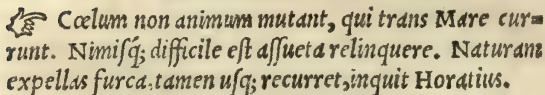 ☞ Cœlum non animum mutant, qui trans Mare cur=
runt. Nimiſq́; difficile eſt aſſueta relinquere. Naturam
expellas furca, tamen uſq; recurret, inquit Horatius.